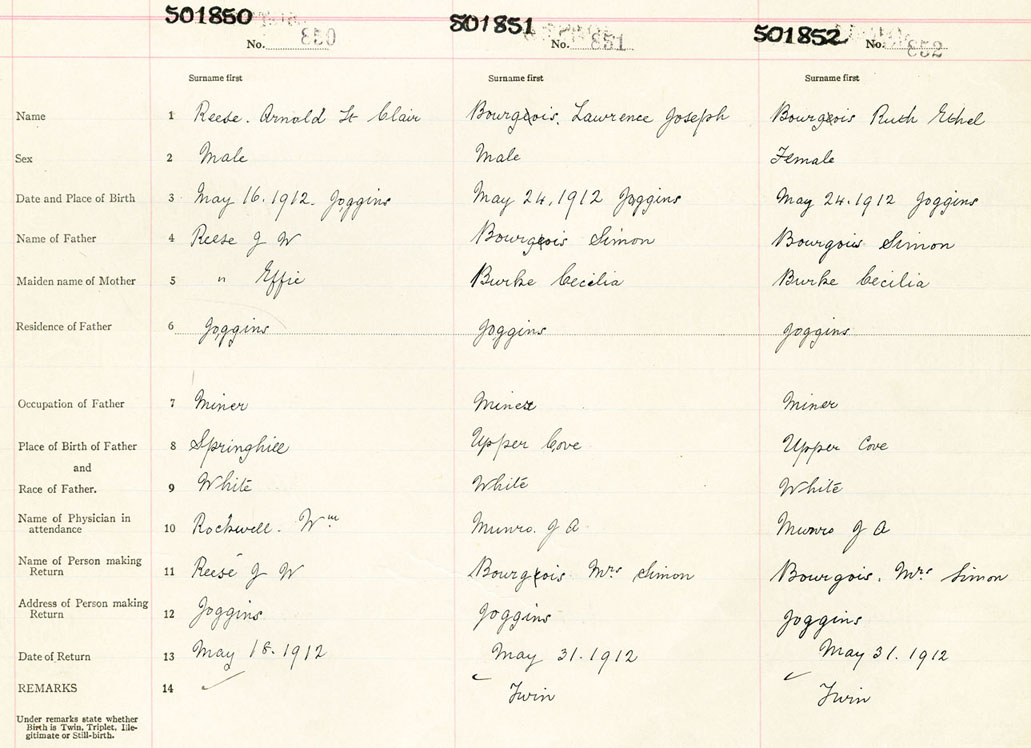 501850 501851 501852
No. 850 No. 851 No. 852
Surname first Surname first Surname first
Name 1 Reese. Arnold St Clair Bourgeois. Lawrence Joseph Bourgeois Ruth Ethel
Sex 2 Male Male Female
Date and Place of Birth 3 May 16. 1912. Joggins May 24, 1912 Joggins May 24. 1912 Joggins
Name of Father 4 Reese J W Bourgeois Simon Bourgois Simon
Maiden name of Mother 5 " Effie Burke Cecilia Burke Cecilia
Residence of Father 6 Joggins Joggins Joggins
Occupation of Father 7 Miner Miner Miner
Place of Birth of Father 8 Springhill Upper Cove Upper Cove
and
Race of Father. 9 White White White
Name of Physician in
attendance 10 Rockwell. Wm Munro. J A. Munro J A
Name of Person making
Return 11 Reese J W Bourgeois Mrs Simon Bourgois. Mrs Simon
Address of Person making
Return 12 Joggins Joggins Joggins
Date of Return 13 May 18. 1912 May 31. 1912 May 31. 1912
REMARKS 14 Twin Twin
Under remarks state whether
Birth is Twin, Triplet, Ille-
gitimate or Still-birth.